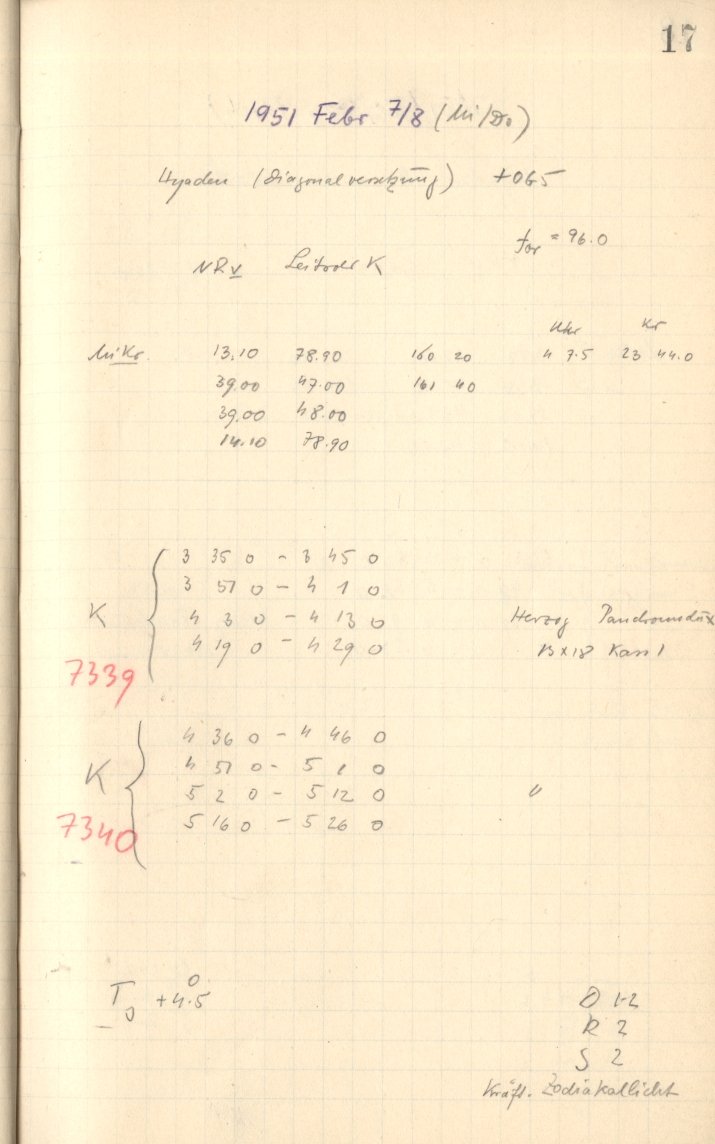 17
1951 Febr 7/8 (Mi/Do)
Hyaden (Diagonalversetzung) +065
for = 96.0
NRv Leitrohr K
Uhr Kr
Mi Kr. 13.10 78.90 160 20 4 7.5 23 44.0
39.00 47.00 161 40
39.00 48.00
14.10 78.90
3 35 0 - 3 45 0
3 51 0 - 4 1 0
K 4 3 0 - 4 13 0 Herzog
4 19 0 - 4 29 0 13x18 Kass 1
7339
4 36 0 - 4 46 0
K 4 51 0 - 5 1 0
5 2 0 - 5 12 0 "
7340 5 16 0 - 5 26 0
T0 +4.5°
D 1-2
R 2
S 2
Kräft. Zodiakallicht